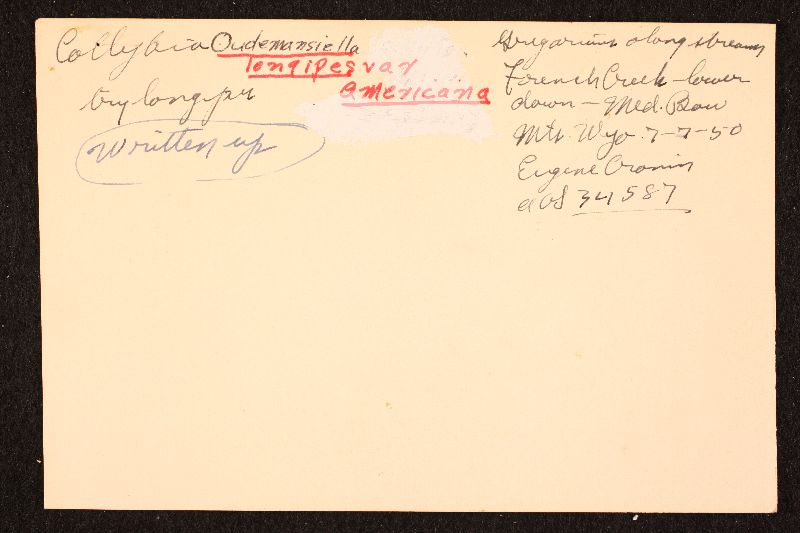 Collybia Oudemansiella
longipes var
americana
try longipes
Written up
Gregarious along streams
French Creek - lower
down - Med. Bow
Mts. Wyo. 7-7-50
Eugene Cronin
AHS 34587